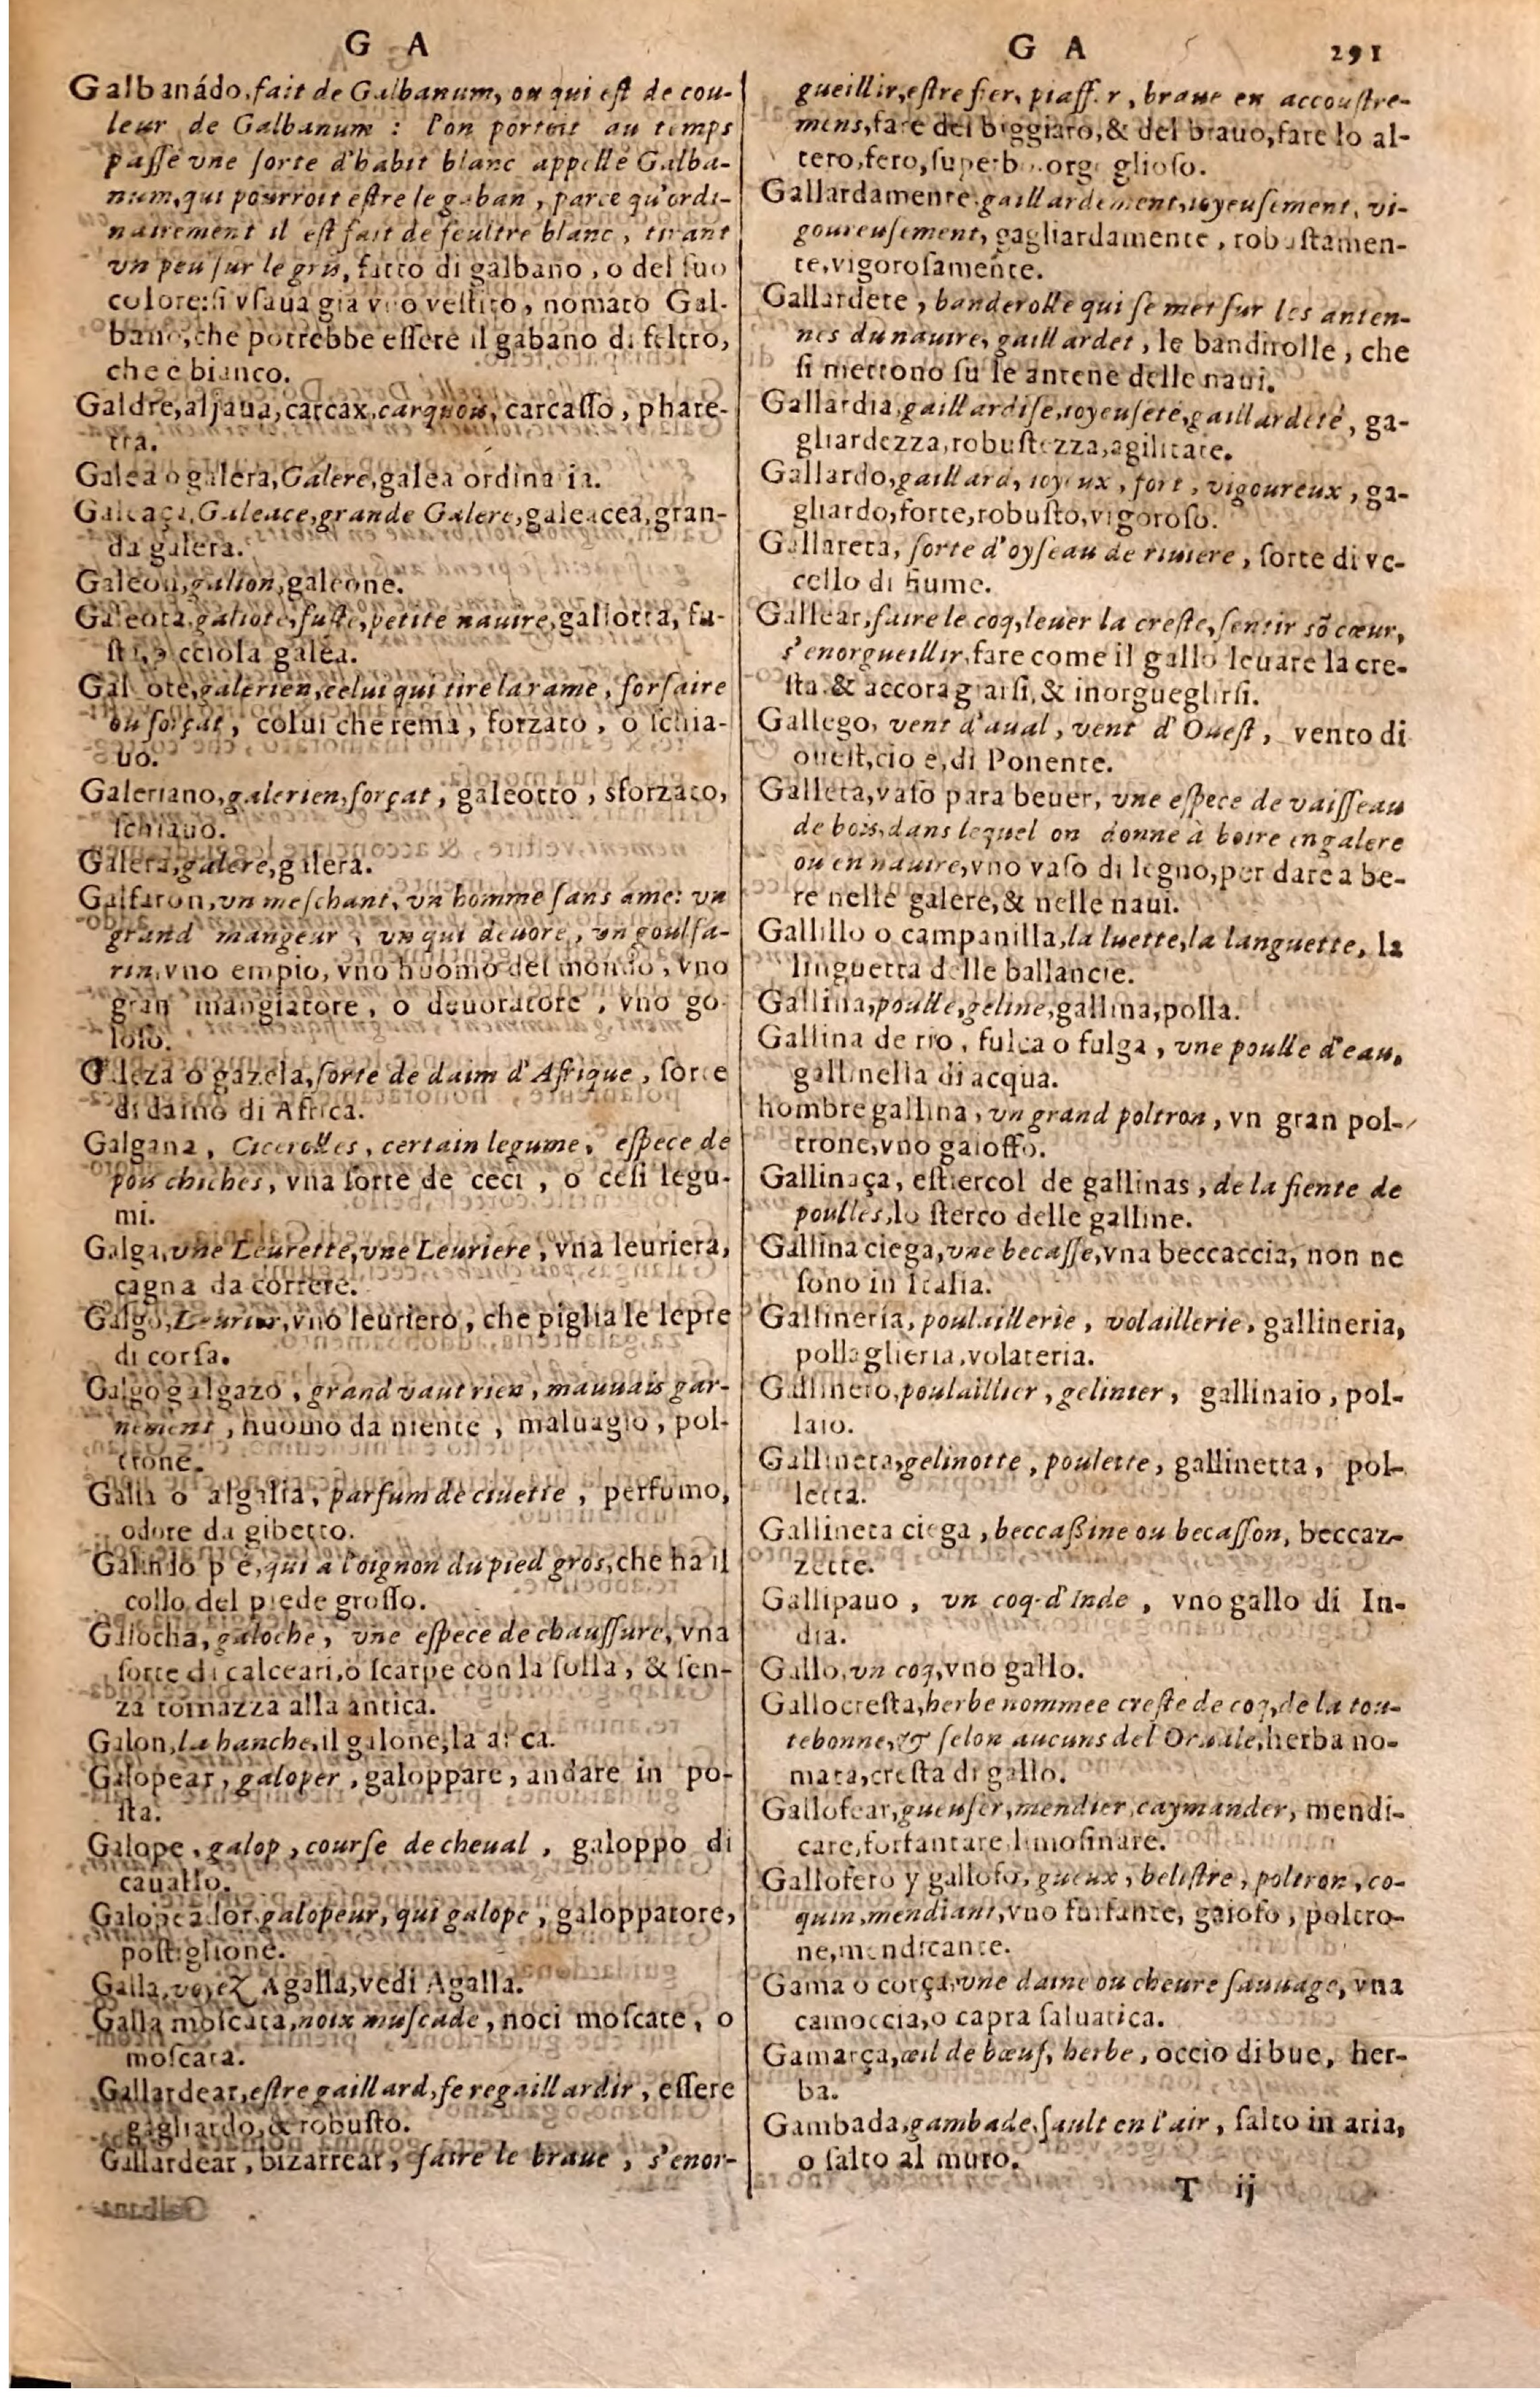 G A
Galbanádo, fait de Galbanum, ou qui eſt de cou-
leur de Galbanum : l'on portoit au temps
paſſé vne ſorte d'habit blanc appellé Galba-
num, qui pourroit eſtre le gaban, parce qu'ordi-
nairement il eſt fait de feultre blanc, tirant
vn peu ſur le gris, fatto di galbano, o del ſuo
colore: ſi vſaua gia vno veſtito, nomato Gal-
bano, che potrebbe eſſere il gabano di feltro,
che è bianco.
Galdre, aljaua, carcax, carquois, carcaſſo, phare-
tra.
Galea o galera, Galere, galea ordinaria.
Galeaça, Galeace, grande Galere, galeacea, gran-
da galera.
Galeon, galion, galeone.
Galeota, galiote, fuſte, petite nauire, galiotta, fu-
ſta, picciola galea.
Galeote, galerien, celui qui tire la rame, forſaire
ou forçat, colui che rema, forzato, o ſchia-
uo.
Galeriano, galerien, forçat, galeotto, sforzato,
ſchiauo.
Galera, galere, galera.
Galfaron, vn meſchant, vn homme ſans ame: vn
grand mangeur, vn qui deuore, vn goulfa-
rin, vno empio, vno huomo del mondo, vno
gran mangiatore, o deuoratore, vno go-
loſo.
Galeza o gazela, ſorte de daim d'Afrique, ſorte
di daino di Africa.
Galgana, Cicerolles, certain legume, eſpece de
pois chiches, vna ſorte de ceci, o ceſi legu-
mi.
Galga, vne Leurette, vne Leuriere, vna leuriera,
cagna da correre.
Galgo, Leurier, vno leuriero, che piglia le lepre
di corſa.
Galgo galgazo, grand vautrien, mauuais gar-
nement, huomo da niente, maluagio, pol-
trone.
Galia o algalia, parfum de ciuette, perfumo,
odore da gibetto.
Galindo pie, qui a l'oignon du pied gros, che ha il
collo del piede groſſo.
Galocha, galoche, vne eſpece de chauſſure, vna
ſorte di calceari, o ſcarpe con la ſolla, & ſen-
za tomazza alla antica.
Galon, la hanche, il galone, la anca.
Galopear, galoper, galoppare, andare in po-
ſta.
Galope, galop, courſe de cheual, galoppo di
cauallo.
Galopeador, galopeur, qui galope, galoppatore,
poſtiglione.
Galla, voyez Agalla, vedi Agalla.
Galla moſcata, noix muſcade, noci moſcate, o
moſcata.
Gallardear, eſtre gaillard, ſe regaillardir, eſſere
gagliardo, & robuſto.
Gallardear, bizarrear, faire le braue, s'enor-
G A 291
gueillir, eſtre fier, piaffer, braue en accouſtre-
mens, fare del biggiaro, & del brauo, fare lo al-
tero, fero, ſuperbo, orgoglioſo.
Gallardamente, gaillardement, ioyeuſement, vi-
goureuſement, gagliardamente, robuſtamen-
te, vigoroſamente.
Gallardete, banderolle qui ſe met ſur les anten-
nes du nauire, gaillardet, le bandirolle, che
ſi mettono ſu le antene delle naui.
Gallardia, gaillardiſe, ioyeuſeté, gaillardeté, ga-
gliardezza, robuſtezza, agilitate.
Gallardo, gaillard, ioyeux, fort, vigoureux, ga-
gliardo, forte, robuſto, vigoroſo.
Gallareta, ſorte d'oyſeau de riuiere, ſorte di vc-
cello di fiume.
Gallear, faire le coq, leuer la creſte, ſentir sõ cœur,
s'enorgueillir, fare come il gallo leuare la cre-
ſta & accoragiarſi, & inorgueglirſi.
Gallego, vent d'aual, vent d'Oueſt, vento di
oueſt, cio e, di Ponente.
Galleta, vaſo para beuer, vne eſpece de vaiſſeau
de bois, dans lequel on donne à boire en galere
ou en nauire, vno vaſo di legno, per dare a be-
re nelle galere, & nelle naui.
Gallillo o campanilla, la luette, la languette, la
linguetta delle ballancie.
Gallina, poulle, geline, gallina, polla.
Gallina de rio, fulca o fulga, vne poulle d'eau,
gallinella di acqua.
hombre gallina, vn grand poltron, vn gran pol-
trone, vno gaioffo.
Gallinaça, eſtiercol de gallinas, de la fiente de
poulles, lo ſterco delle galline.
Gallina ciega, vne becaſſe, vna beccaccia, non ne
ſono in Italia.
Gallineria, poulaillerie, volaillerie, gallineria,
pollaglieria, volateria.
Gallinero, poulaillier, gelinier, gallinaio, pol-
laio.
Gallineta, gelinotte, poulette, gallinetta, pol-
letta.
Gallineta ciega, beccaßine ou becaſſon, beccaz-
zette.
Gallipauo, vn coq-d'Inde, vno gallo di In-
dia.
Gallo, vn coq, vno gallo.
Gallocreſta, herbe nommee creſte de coq, de la tou-
tebonne, & ſelon aucuns del Oruale, herba no-
mata, creſta di gallo.
Gallofear, gueuſer, mendier, caymander, mendi-
care, forfantare, limoſinare.
Gallofero y gallofo, gueux, beliſtre, poltron, co-
quin, mendiant, vno furfante, gaiofo, poltro-
ne, mendicante.
Gama o corça, vne daine ou cheure ſauuage, vna
camoccia, o capra ſaluatica.
Gamarça, œil de bœuf, herbe, occio di bue, her-
ba.
Gambada, gambade, ſault en l'air, ſalto in aria,
o ſalto al muro.
T ij